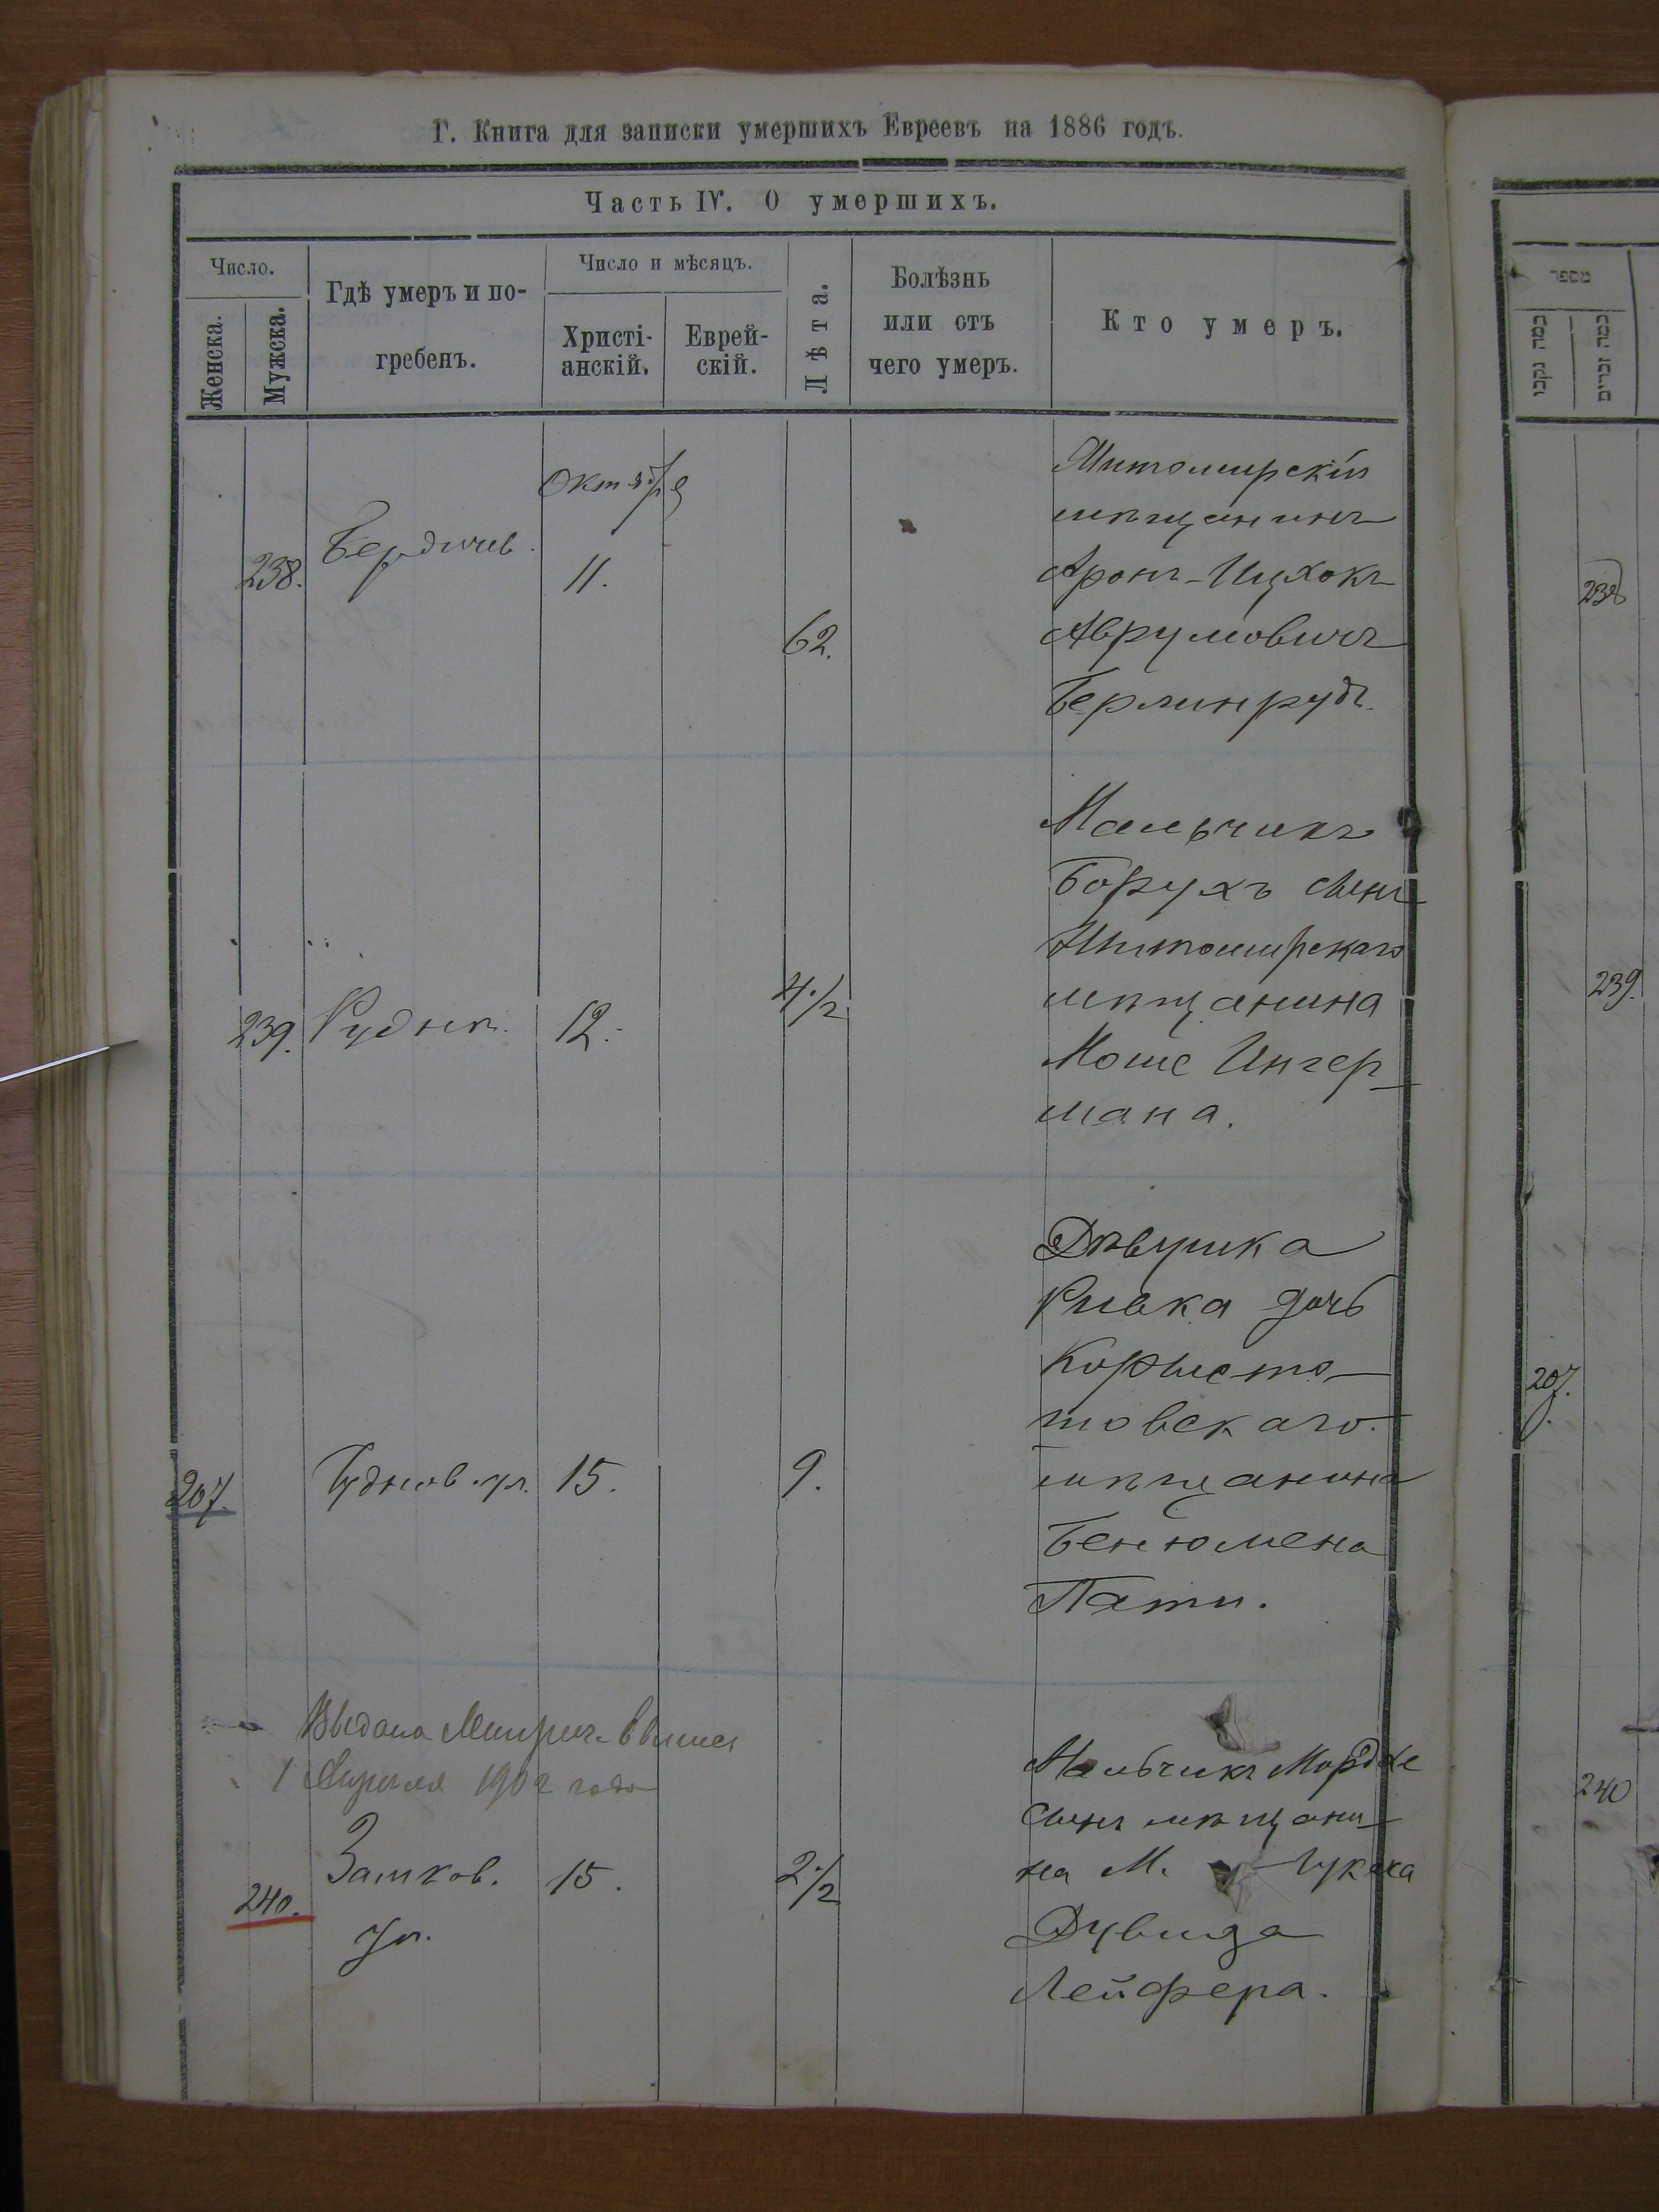 Г. Книга для записки умершихъ Евреевъ на 1886 годъ.
Часть IV. О умершихъ.
Число.
Женска.
Мужска.
Гдѣ умеръ и по-
гребенъ.
Число и мѣсяцъ.
Христі-
анскій.
Еврей-
скій.
Лѣта.
Болѣзнь
или отъ
чего умеръ.
Кто умеръ.
238.
Бердичев.
Октября
11.
62.
Житомирскій
мѣщанинъ
Аронъ-Ицхокъ
Аврумовичъ
Берлинрудъ.
239.
Руднѣ.
12.
4 1/2
Мальчикъ
Борухъ сынъ
Житомирскаго
мѣщанина
Моше Ингер-
мана.
207.
Чуднов. ул.
15.
9.
Дѣвушка
Ривка дочь
Коръисто-
товскаго
мѣщанина
Бенюмена
Пати.
Выдана Метрич. выпись
1 Апреля 1902 года
240.
Замков.
ул.
15.
2 1/2
Мальчикъ Мордхе
сынъ мѣщани-
на М.
Дувида
Лейфера.
238
239.
207.
240